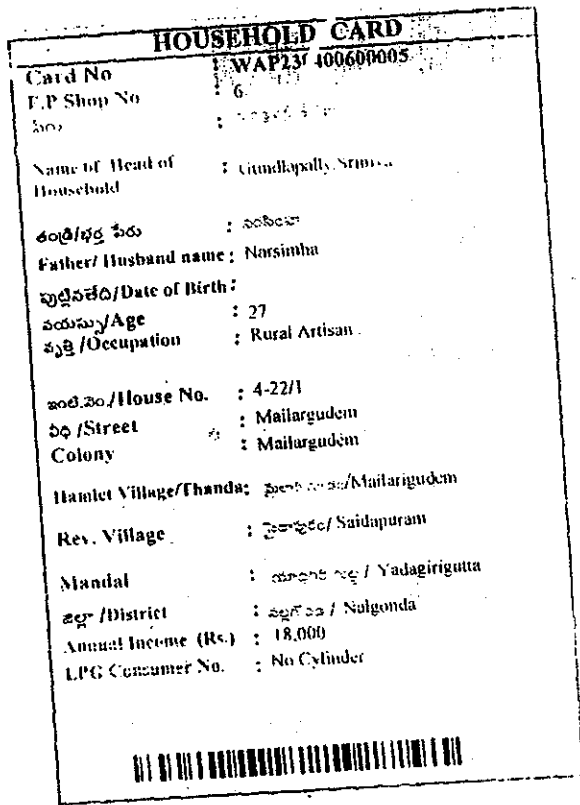 HOUSEHOLD CARD
Card No : WAP23 400600005
F.P Shop No : 6
పేరు :
Name of Head of : Gundlapally,
Household
తండ్రి/భర్త పేరు : నరసింహ
Father/ Husband name : Narsimha
పుట్టినతేది/Date of Birth :
వయస్సు/Age : 27
వృత్తి /Occupation : Rural Artisan
ఇంటి.నెం./House No. : 4-22/1
వీధి /Street : Mailargudem
Colony : Mailargudem
Hamlet Village/Thanda: /Mailarigudem
Rev. Village : సైదాపురం/ Saidapuram
Mandal : యాదగిరి గుట్ట / Yadagirigutta
జిల్లా /District : నల్గొండ / Nalgonda
Annual Income (Rs.) : 18,000
LPG Consumer No. : No Cylinder